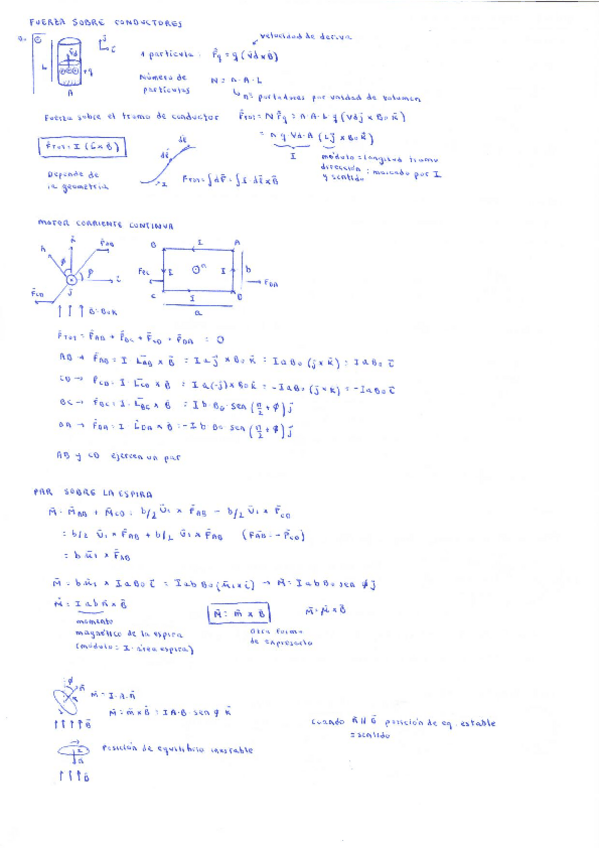 FUERZA SOBRE CONDUCTORES
velocidad de deriva
1 partícula: F̄q = q (v̄d x B̄)
Número de partículas N = n·A·L
↳ n = portadores por unidad de volumen
Fuerza sobre el tramo de conductor F̄TOT = N F̄q = n·A·L q (Vd j̄ x B0 k̄)
= n q·Vd·A (L j̄ x B0 k̄)
F̄TOT = I (L̄ x B̄)
I
módulo = longitud tramo
dirección y sentido : marcado por I
Depende de la geometría
F̄TOT = ∫dF̄ = ∫I·dl̄ x B̄
MOTOR CORRIENTE CONTINUA
B̄ = B0 k̄
F̄TOT = F̄AB + F̄BC + F̄CD + F̄DA = 0
AB → F̄AB = I · L̄AB x B̄ = I a j̄ x B0 k̄ = I a B0 (j̄ x k̄) = I a B0 ī
CD → F̄CD = I · L̄CD x B̄ = I a (-j̄) x B0 k̄ = -I a B0 (j̄ x k̄) = -I a B0 ī
BC → F̄BC = I · L̄BC x B̄ = I b B0 · sen (π/2 + φ) j̄
DA → F̄DA = I · L̄DA x B̄ = -I b B0 sen (π/2 + φ) j̄
AB y CD ejercen un par
PAR SOBRE LA ESPIRA
M̄ = M̄AB + M̄CD = b/2 ū1 x F̄AB - b/2 ū1 x F̄CD
= b/2 ū1 x F̄AB + b/2 ū1 x F̄AB (F̄AB = -F̄CD)
= b ū1 x F̄AB
M̄ = b ū1 x I a B0 ī = I a b B0 (ū1 x ī) → M̄ = I a b B0 sen φ j̄
M̄ = I a b n̄ x B̄
M̄ = m̄ x B̄
M̄ = μ̄ x B̄
momento magnético de la espira
(módulo = I · área espira)
Otra forma de expresarlo
m̄ = I·A·n̄
M̄ = m̄ x B̄ = I A·B·sen φ k̄
Cuando n̄ || B̄ posición de eq. estable
= sentido
Posición de equilibrio inestable